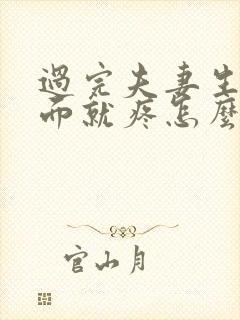 過完夫妻生
而就疼怎麼
官山月